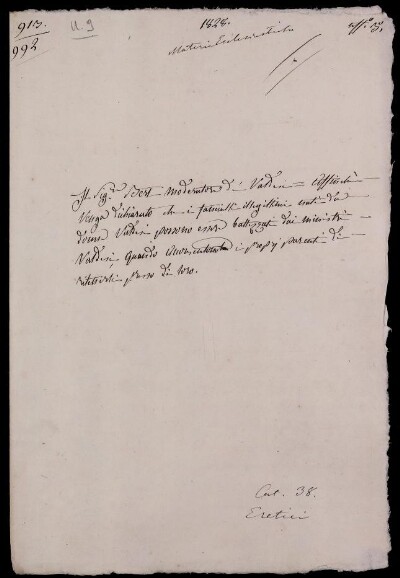 913. 11.9 1828. uff.o 3.
992 Materie Ecclesiastiche
Il Sig.r Bert moderatore di Valdesi = Affinchè
venga dichiarato che i fanciulli illegittimi nati da
donne Valdesi possono essere battezzati dai ministri
Valdesi, quando i proprj parenti di
ritenerli presso di loro.
Cat. 38.
Eretici